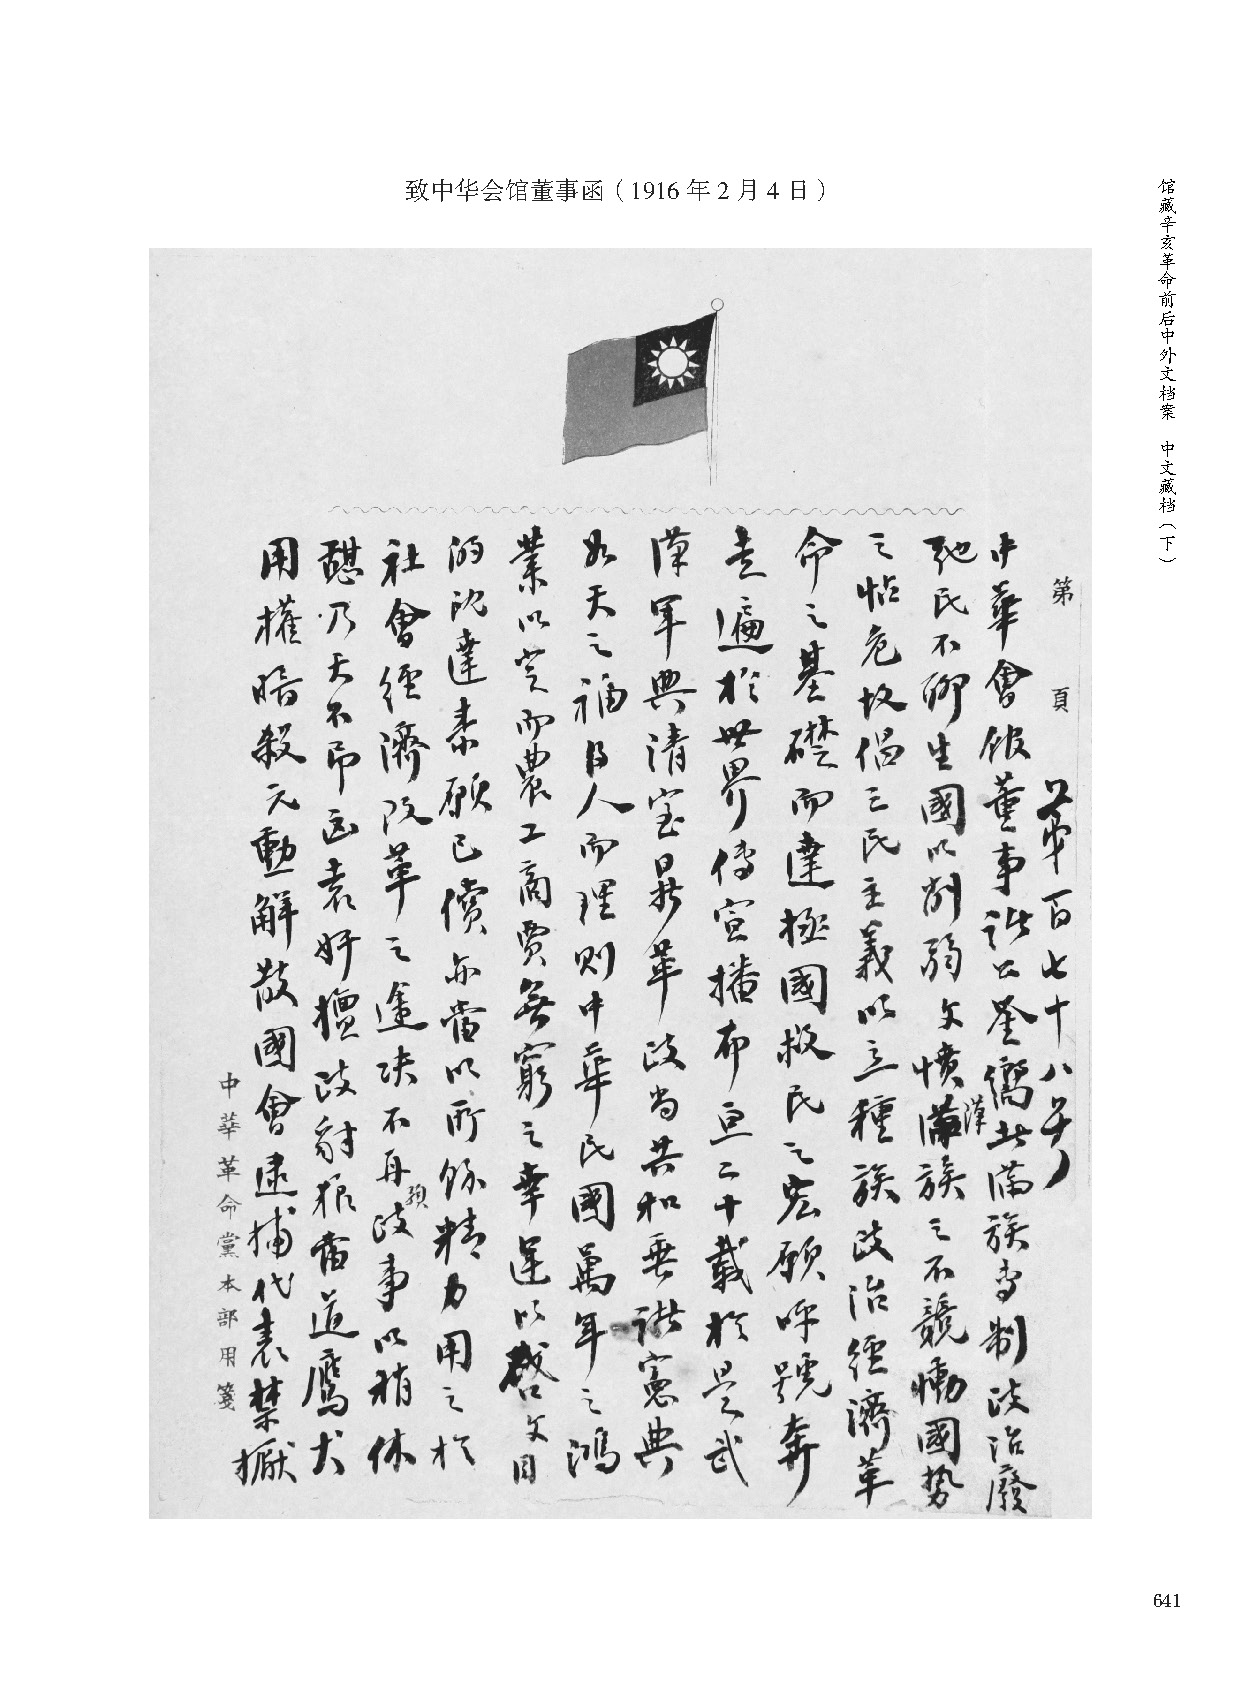 致中华会馆董事函（1916年2月4日）
馆藏辛亥革命前后中外文档案 中文藏档（下）
第 頁
第一百七十八号
中華會館董事諸公鑒衢此滿族専制政治廢
弛民不聊生國以削弱文憤漢族之不競慟國勢
之怗危故倡三民主義以立種族政治經濟革
命之基礎而達極國救民之宏願呼號奔
走遍於世界傳宣播布亘二十載於是武
漢軍興清室鼎革政尚共和垂諸憲典
如天之福得人而理則中華民國萬年之鴻
業以定而農工商賈無窮之幸運以啓文目
的既達素願已償亦當以所餘精力用之於
社會經濟改革之途决不再預政事以稍休
憩乃天不弔凶袁奸擅政豺狼當道鷹犬
用權暗殺元勳解散國會逮捕代表禁厭
中華革命黨本部用箋
641